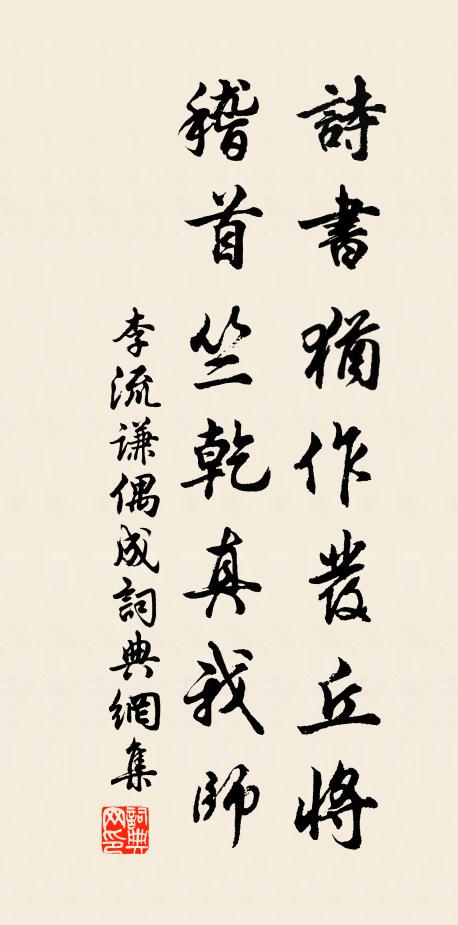 詩書猶作發丘將
稽首竺乾真我師
李流謙偶成詞典網集
詞典网印